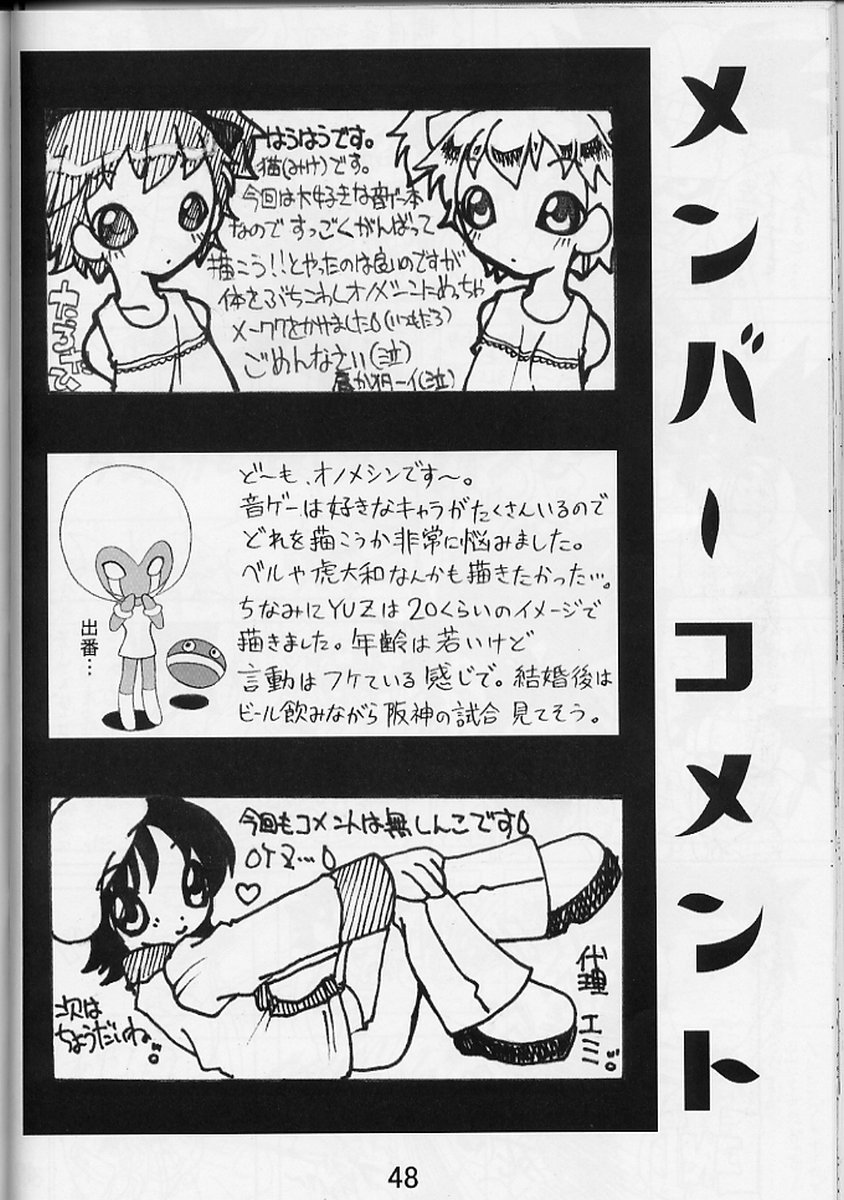 メンバーコメント
はうはうです。
猫(みけ)です。
今回は大好きな音ゲー本
なので すっごくがんばって
描こう!!とやったのは良いのですが
体をぶちこわしオノメシンにめっちゃ
メーワクをかけました(いつもだろ)
ごめんなさい(泣)
ど〜も、オノメシンです〜。
音ゲーは好きなキャラがたくさんいるので
どれを描こうか非常に悩みました。
ベルや虎大和なんかも描きたかった…。
ちなみにYUZは20くらいのイメージで
描きました。年齢は若いけど
言動はフケている感じで。結婚後は
ビール飲みながら阪神の試合見てそう。
出番…
今回もコメントは無しんこです
次は
ちょうだいね
代理 エミ
48